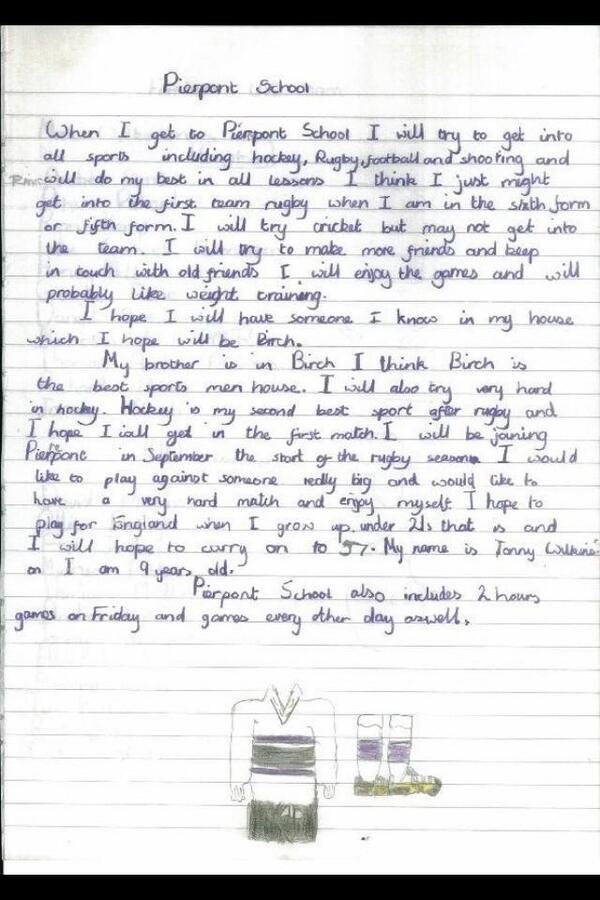 Pierpont School
When I get to Pierpont School I will try to get into
all sports including hockey, Rugby, football and shooting and
will do my best in all lessons I think I just might
get into the first team rugby when I am in the sixth form
or fifth form. I will try cricket but may not get into
the team. I will try to make more friends and keep
in touch with old friends I will enjoy the games and will
probably like weight training.
I hope I will have someone I know in my house
which I hope will be Birch.
My brother is in Birch I think Birch is
the best sports men house. I will also try very hard
in hockey. Hockey is my second best sport after rugby and
I hope I will get in the first match. I will be joining
Pierpont in September the start of the rugby season I would
like to play against someone really big and would like to
have a very hard match and enjoy myself I hope to
play for England when I grow up, under 21s that is and
I will hope to carry on to 57. My name is Jonny Wilkins-
on I am 9 years old.
Pierpont School also includes 2 hours
games on Friday and games every other day aswell.